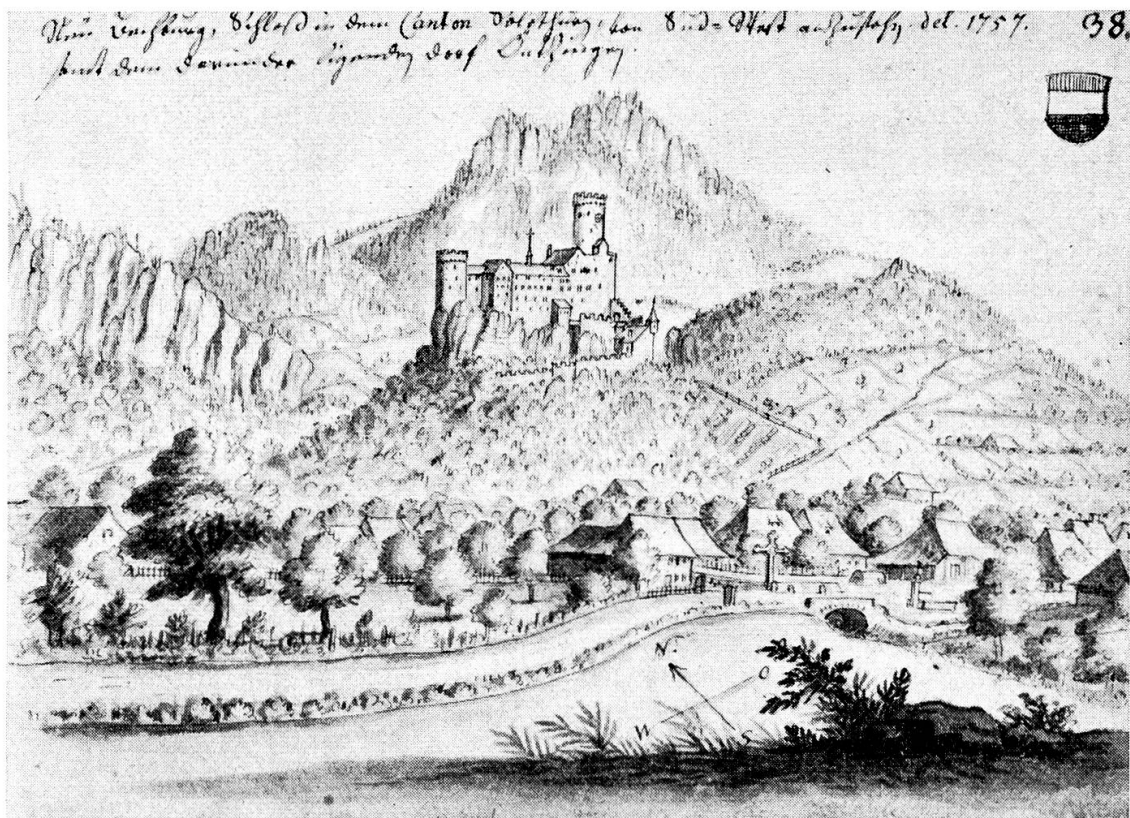 Neu Bechburg, Schloß in dem Canton Solothurn, von Süd-West anzusehen. del. 1757. 38.
samt dem darunder ligenden dorf Önsingen
N.
O
W
S